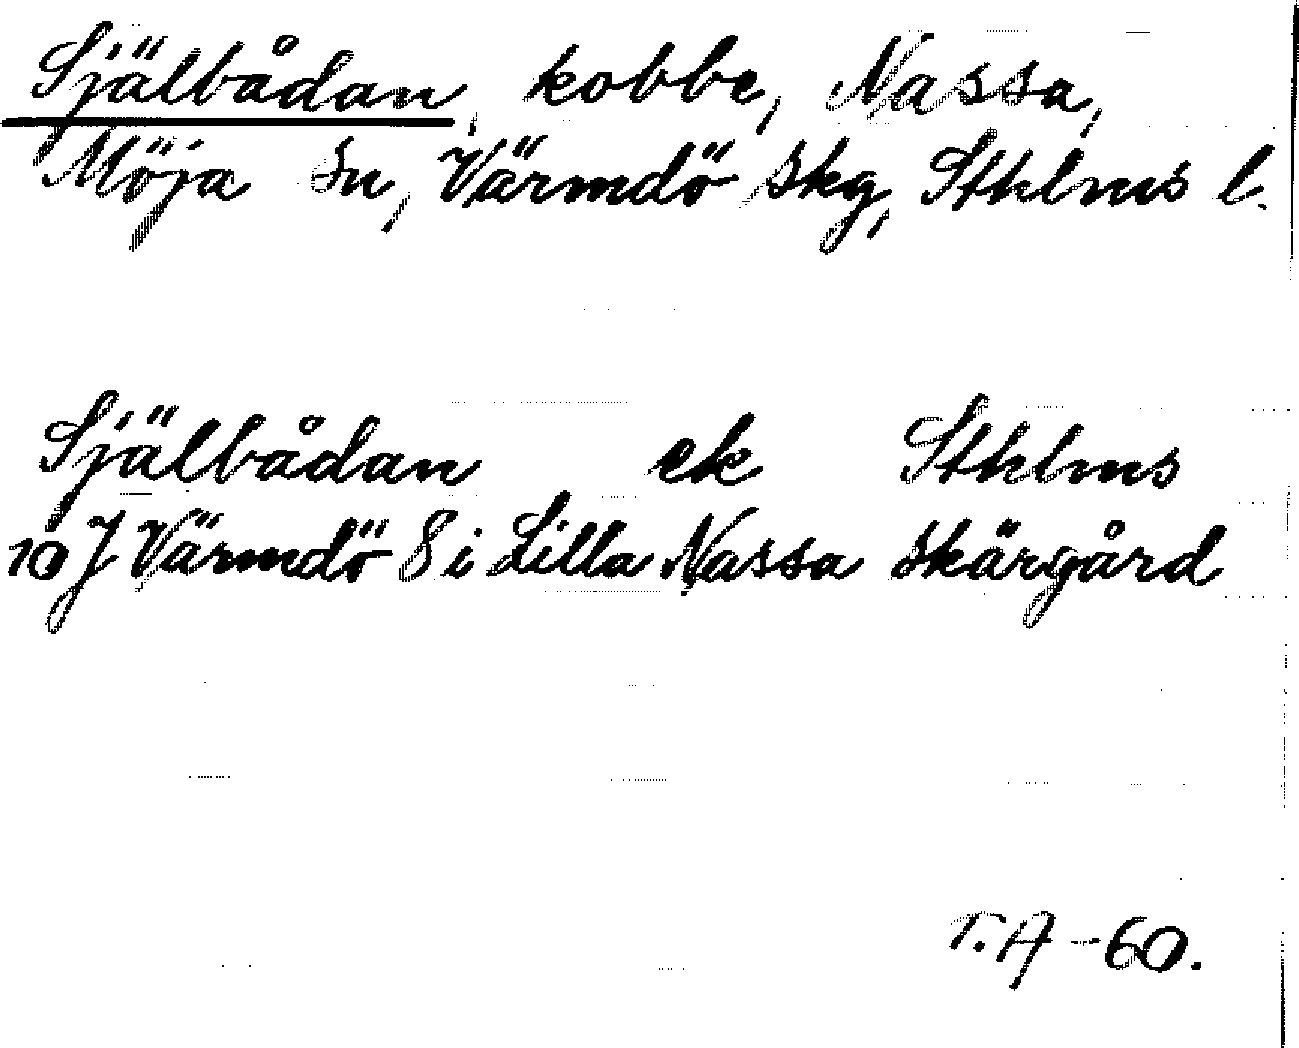 Själbådan, kobbe, Nassa,
Möja sn, Värmdö skg, Sthlms l.
Själbådan ek Sthlms
10 J Värmdö 8 i Lilla Nassa skärgård
T.A -60.